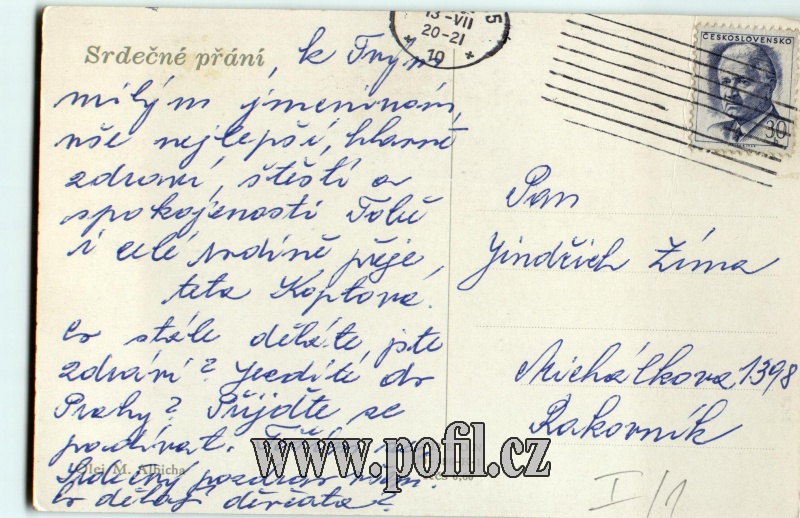 Srdečné přání, k Tvým
milým jmeninám,
vše nejlepší, hlavně
zdraví, štěstí a
spokojenosti Tobě
i celé rodině přeje,
teta Koptová.
Co stále děláte, jste
zdrávi? Jezdíte do
Prahy? Přijďte se
podívat.
Srdečný pozdrav všem.
Co dělají děvčata?
Olej M. Albicha
13-VII
20-21
10
ČESKOSLOVENSKO
30
Pan
Jindřich Zíma
Michálkova 1398
Rakovník
www.pofil.cz
I/1